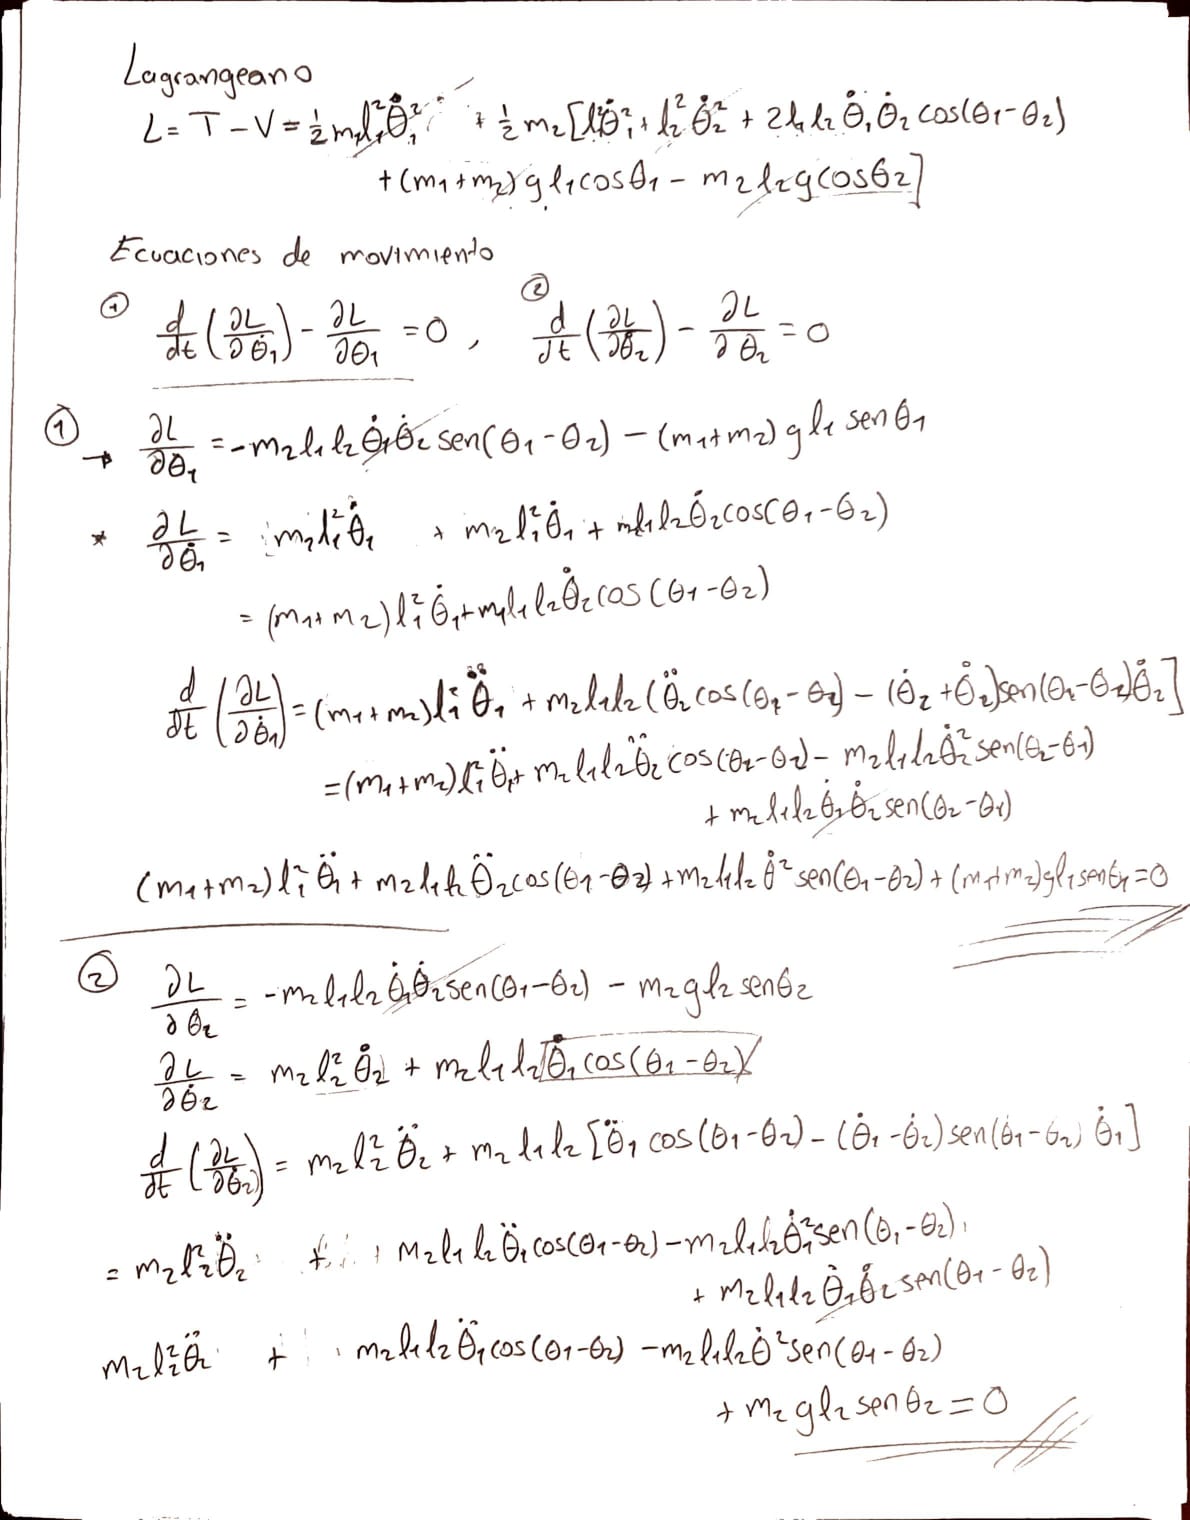 Lagrangeano
L = T - V = ½ m₁l₁²θ̇₁² + ½ m₂[l₁²θ̇₁² + l₂²θ̇₂² + 2l₁l₂ θ̇₁θ̇₂ cos(θ₁-θ₂)
+ (m₁+m₂) g l₁ cosθ₁ - m₂l₂g cosθ₂]
Ecuaciones de movimiento
① d/dt (∂L/∂θ̇₁) - ∂L/∂θ₁ = 0 , ② d/dt (∂L/∂θ̇₂) - ∂L/∂θ₂ = 0
① → ∂L/∂θ₁ = -m₂l₁l₂ θ̇₁θ̇₂ sen(θ₁-θ₂) - (m₁+m₂) g l₁ sen θ₁
* ∂L/∂θ̇₁ = m₂l₁²θ̇₁ + m₂l₁²θ̇₁ + m₂l₁l₂θ̇₂ cos(θ₁-θ₂)
= (m₁+m₂) l₁²θ̇₁ + m₂l₁l₂θ̇₂ cos(θ₁-θ₂)
d/dt (∂L/∂θ̇₁) = (m₁+m₂) l₁² θ̈₁ + m₂l₁l₂ (θ̈₂ cos(θ₁-θ₂) - (θ̇₂+θ̇₂) sen(θ₁-θ₂)θ̇₂]
= (m₁+m₂) l₁² θ̈₁ + m₂l₁l₂θ̈₂ cos(θ₂-θ₁) - m₂l₁l₂θ̇₂² sen(θ₂-θ₁)
+ m₂l₁l₂ θ̇₁θ̇₂ sen(θ₂-θ₁)
(m₁+m₂) l₁² θ̈₁ + m₂l₁l₂ θ̈₂ cos(θ₁-θ₂) + m₂l₁l₂ θ̇² sen(θ₁-θ₂) + (m₁+m₂)gl₁senθ₁ = 0
② ∂L/∂θ₂ = -m₂l₁l₂ θ̇₁θ̇₂ sen(θ₁-θ₂) - m₂gl₂ senθ₂
∂L/∂θ̇₂ = m₂l₂² θ̇₂ + m₂l₁l₂ θ̇₁ cos(θ₁-θ₂)
d/dt (∂L/∂θ̇₂) = m₂l₂² θ̈₂ + m₂l₁l₂ [θ̈₁ cos(θ₁-θ₂) - (θ̇₁-θ̇₂) sen(θ₁-θ₂) θ̇₁]
= m₂l₂²θ̈₂ + m₂l₁l₂ θ̈₁ cos(θ₁-θ₂) - m₂l₁l₂θ̇₁² sen(θ₁-θ₂)
+ m₂l₁l₂ θ̇₁θ̇₂ sen(θ₁-θ₂)
m₂l₂²θ̈₂ + m₂l₁l₂ θ̈₁ cos(θ₁-θ₂) - m₂l₁l₂θ̇² sen(θ₁-θ₂)
+ m₂ gl₂ sen θ₂ = 0